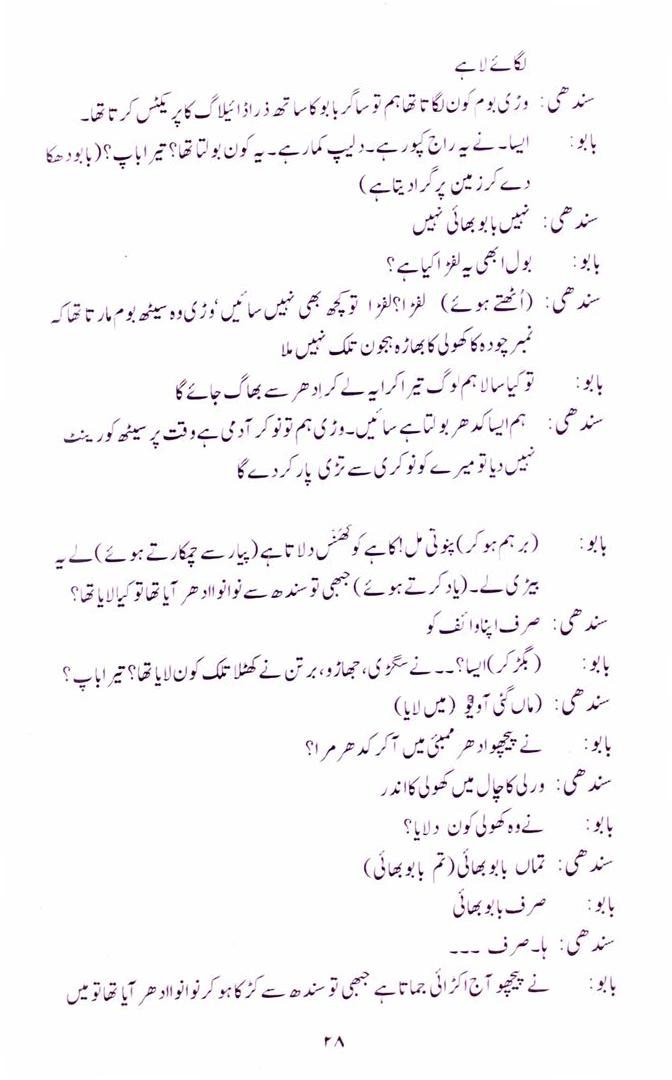 لگائے لا ہے
سندھی: وڑی بوم کون لگاتا تھا ہم تو ساگر بابو کا ساتھ ذرا ڈائیلاگ کا پریکٹس کرتا تھا۔
بابو: ایسا۔ نے یہ راج کپور ہے۔ دلیپ کمار ہے۔ یہ کون بولتا تھا؟ تیرا باپ؟ (بابو دھکا
دے کر زمین پر گرا دیتا ہے)
سندھی: نہیں بابو بھائی نہیں
بابو: بول ابھی یہ لفڑا کیا ہے؟
سندھی: (اُٹھتے ہوئے) لفڑا؟ لفڑا تو کچھ بھی نہیں سائیں، وڑی وہ سیٹھ بوم مارتا تھا کہ
نمبر چودہ کا کھولی کا بھاڑہ ہجون تلک نہیں ملا
بابو: تو کیا سالا ہم لوگ تیرا کرایہ لے کر ادھر سے بھاگ جائے گا
سندھی: ہم ایسا کدھر بولتا ہے سائیں۔ وڑی ہم تو نوکر آدمی ہے وقت پر سیٹھ کو رینٹ
نہیں دیا تو میرے کو نوکری سے تڑی پار کر دے گا
بابو: (برہم ہو کر) پنوتی مل! کاہے کو کھُنّس دلاتا ہے (پیار سے چمکارتے ہوئے) لے یہ
بیڑی لے۔ (یاد کرتے ہوئے) جبھی تو سندھ سے نوا نوا ادھر آیا تھا تو کیا لایا تھا؟
سندھی: صرف اپنا وائف کو
بابو: (بگڑ کر) ایسا؟۔۔ نے سگڑی، جھاڑو، برتن نے کھٹلا تلک کون لایا تھا؟ تیرا باپ؟
سندھی: (ماں گنی آو (میں لایا)
بابو: نے پیچھو ادھر ممبئی میں آ کر کدھر مرا؟
سندھی: ورلی کا چال میں کھولی کا اندر
بابو: نے وہ کھولی کون دلایا؟
سندھی: تماں بابو بھائی (تم بابو بھائی)
بابو: صرف بابو بھائی
سندھی: ہا۔ صرف ۔۔۔
بابو: نے پیچھو آج اکڑائی جماتا ہے جبھی تو سندھ سے کڑکا ہو کر نوا نوا ادھر آیا تھا تو میں
۲۸